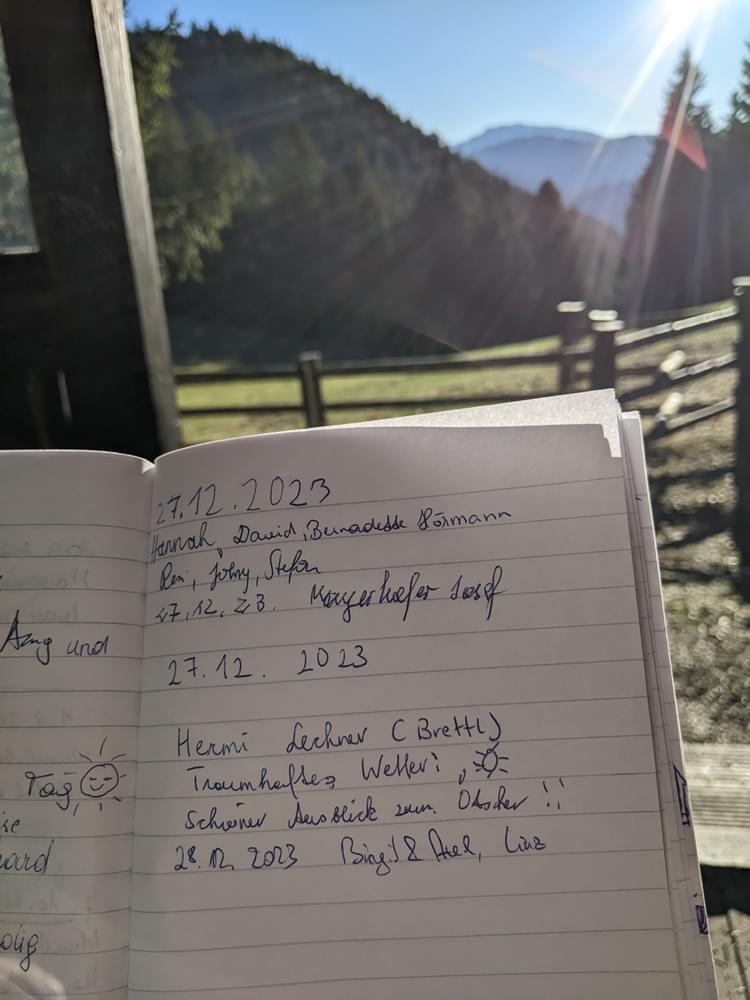 Amg und
Tag
se
ard
27.12.2023
Hannah, David, Bernadette Hörmann
Reni, Johny, Stefan
27.12.23. Mayerhofer Josef
27.12. 2023
Hermi Lechner (Brettl)
Traumhaftes Wetter!,
Schöner Ausblick zum Ötscher !!
28.12.2023 Birgit & Axel, Linz